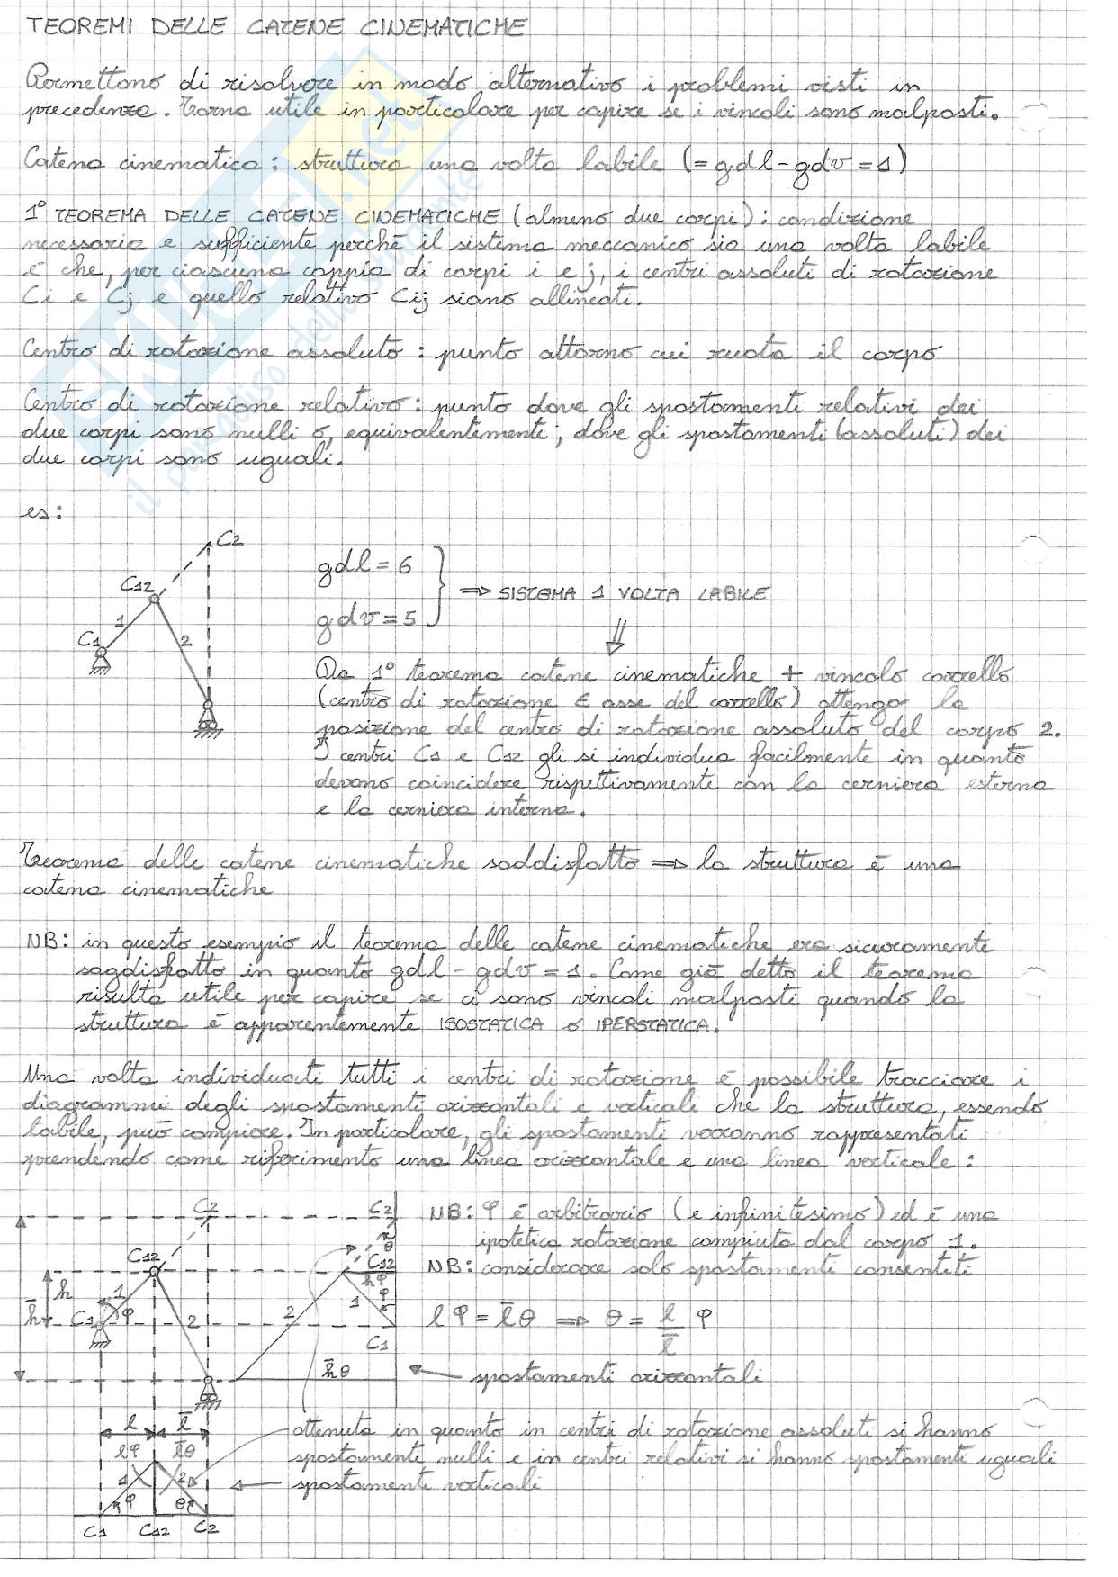 TEOREMI DELLE CATENE CINEMATICHE
Permettono di risolvere in modo alternativo i problemi visti in
precedenza. Torna utile in particolare per capire se i vincoli sono malposti.
Catena cinematica: struttura una volta labile (= gdl - gdv = 1)
1° TEOREMA DELLE CATENE CINEMATICHE (almeno due corpi): condizione
necessaria e sufficiente perchè il sistema meccanico sia una volta labile
è che, per ciascuna coppia di corpi i e j, i centri assoluti di rotazione
Ci e Cj e quello relativo Cij siano allineati.
Centro di rotazione assoluto: punto attorno cui ruota il corpo
Centro di rotazione relativo: punto dove gli spostamenti relativi dei
due corpi sono nulli o, equivalentemente, dove gli spostamenti (assoluti) dei
due corpi sono uguali.
es:
C2
C12
1
2
C1
gdl = 6
gdv = 5
⇒ SISTEMA 1 VOLTA LABILE
⇓
Da 1° teorema catene cinematiche + vincolo carrello
(centro di rotazione ∈ asse del carrello) ottengo la
posizione del centro di rotazione assoluto del corpo 2.
I centri C1 e C12 gli si individua facilmente in quanto
devono coincidere rispettivamente con la cerniera esterna
e la cerniera interna.
Teorema delle catene cinematiche soddisfatto ⇒ la struttura è una
catena cinematiche
NB: in questo esempio il teorema delle catene cinematiche era sicuramente
soddisfatto in quanto gdl - gdv = 1. Come già detto il teorema
risulta utile per capire se ci sono vincoli malposti quando la
struttura è apparentemente ISOSTATICA o IPERSTATICA.
Una volta individuati tutti i centri di rotazione è possibile tracciare i
diagrammi degli spostamenti orizzontali e verticali che la struttura, essendo
labile, può compiere. In particolare, gli spostamenti verranno rappresentati
prendendo come riferimento una linea orizzontale e una linea verticale:
C2
C2
θ
C12
C12
h
h̄
hφ
φ
1
φ
1
C1
2
2
C1
h̄θ
NB: φ è arbitrario (e infinitesimo) ed è una
ipotetica rotazione compiuta dal corpo 1.
NB: considerare solo spostamenti consentiti
lφ = l̄θ ⇒ θ = l/l̄ φ
← spostamenti orizzontali
l
l̄
lφ
l̄θ
1
2
φ
θ
C1 C12 C2
ottenuta in quanto in centri di rotazione assoluti si hanno
spostamenti nulli e in centri relativi si hanno spostamenti uguali
← spostamenti verticali